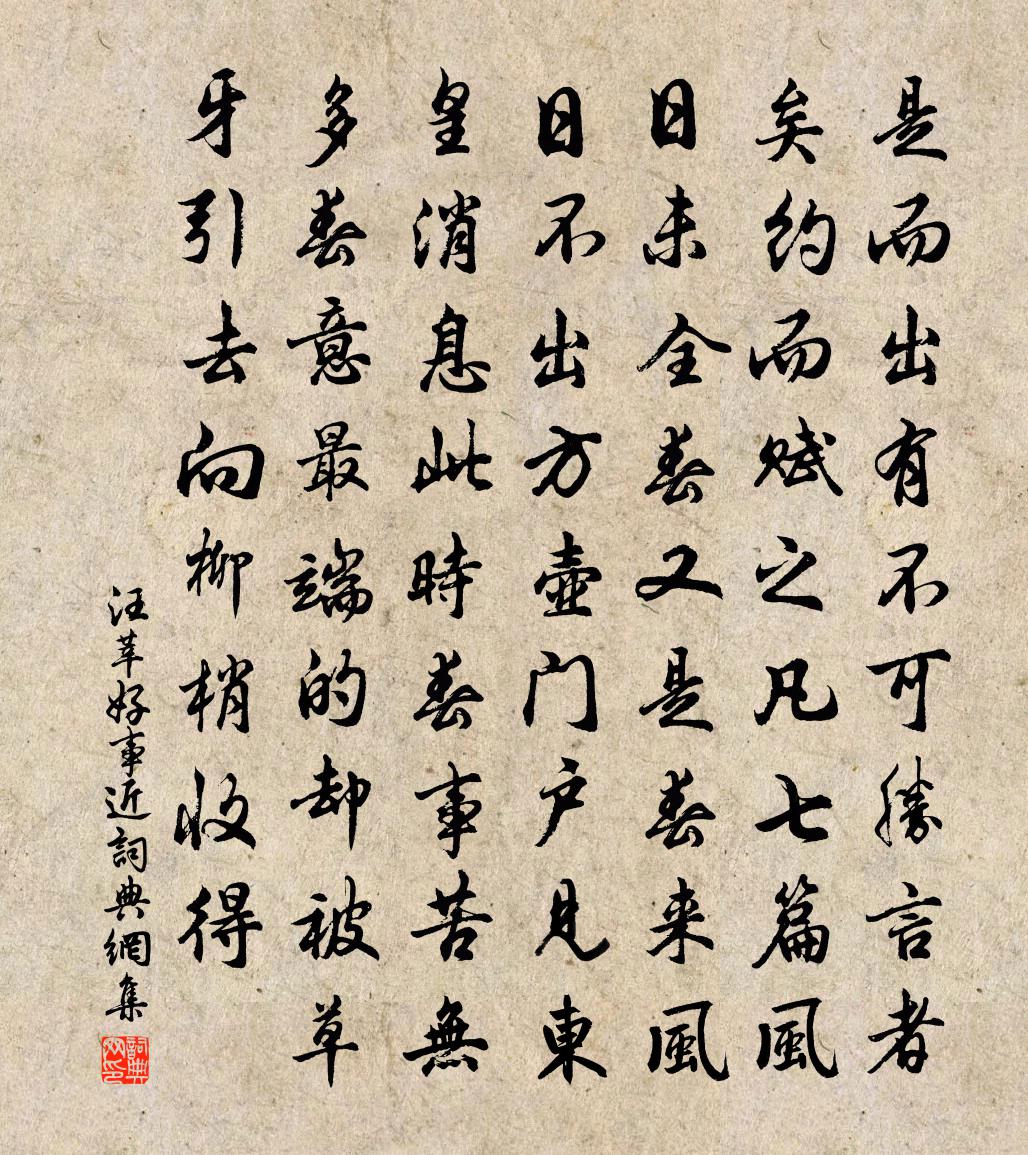 是而出有不可勝言者
矣約而賦之凡七篇風
日未全春又是春来風
日不出方壺门户見東
皇消息此時春事苦無
多春意最端的却被草
牙引去向柳梢收得
汪莘好事近詞典網集
詞典网印